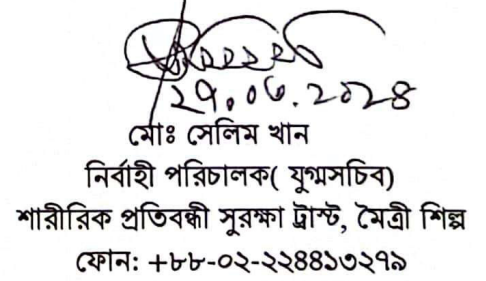 ২৭.০৬.২০২৪
মোঃ সেলিম খান
নির্বাহী পরিচালক( যুগ্মসচিব)
শারীরিক প্রতিবন্ধী সুরক্ষা ট্রাস্ট, মৈত্রী শিল্প
ফোন: +৮৮-০২-২২৪৪১৩২৭৯